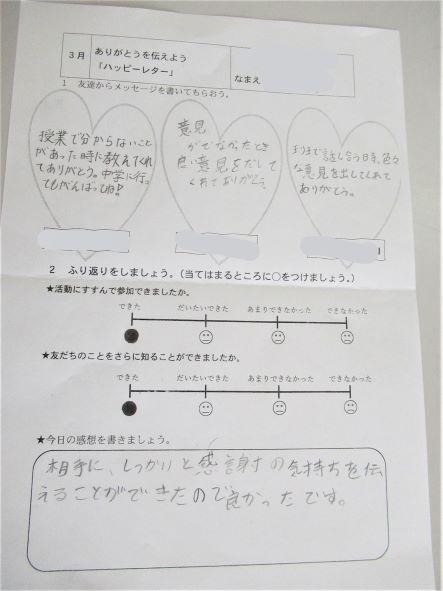 3月
ありがとうを伝えよう
「ハッピーレター」
なまえ
1 友達からメッセージを書いてもらおう。
授業で分からないこと
があった時に教えてくれ
てありがとう。中学に行っ
てもがんばってね!
意見
がでなかったとき
良い意見をだして
くれてありがとう。
話し合う時、色々
な意見を出してくれて
ありがとう。
2 ふり返りをしましょう。(当てはまるところに○をつけましょう。)
★活動にすすんで参加できましたか。
できた だいたいできた あまりできなかった できなかった
★友だちのことをさらに知ることができましたか。
できた だいたいできた あまりできなかった できなかった
★今日の感想を書きましょう。
相手に、しっかりと感謝の気持ちを伝
えることができたので良かったです。